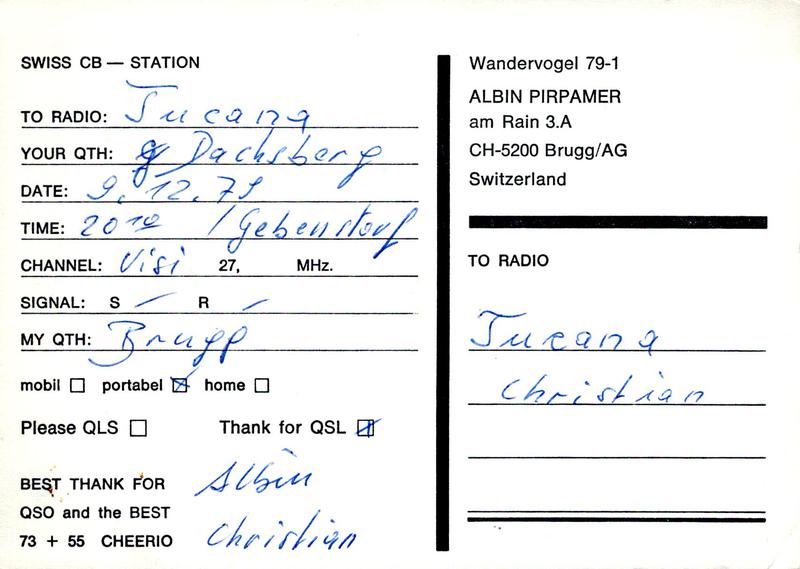 SWISS CB — STATION
TO RADIO: Tucana
YOUR QTH: Dachsberg
DATE: 9.12.79
TIME: 20 10 / Gebenstorf
CHANNEL: Visi 27, MHz.
SIGNAL: S — R —
MY QTH: Brugg
mobil portabel home
Please QLS Thank for QSL
BEST THANK FOR Albin
QSO and the BEST
73 + 55 CHEERIO Christian
Wandervogel 79-1
ALBIN PIRPAMER
am Rain 3.A
CH-5200 Brugg/AG
Switzerland
TO RADIO
Tucana
Christian